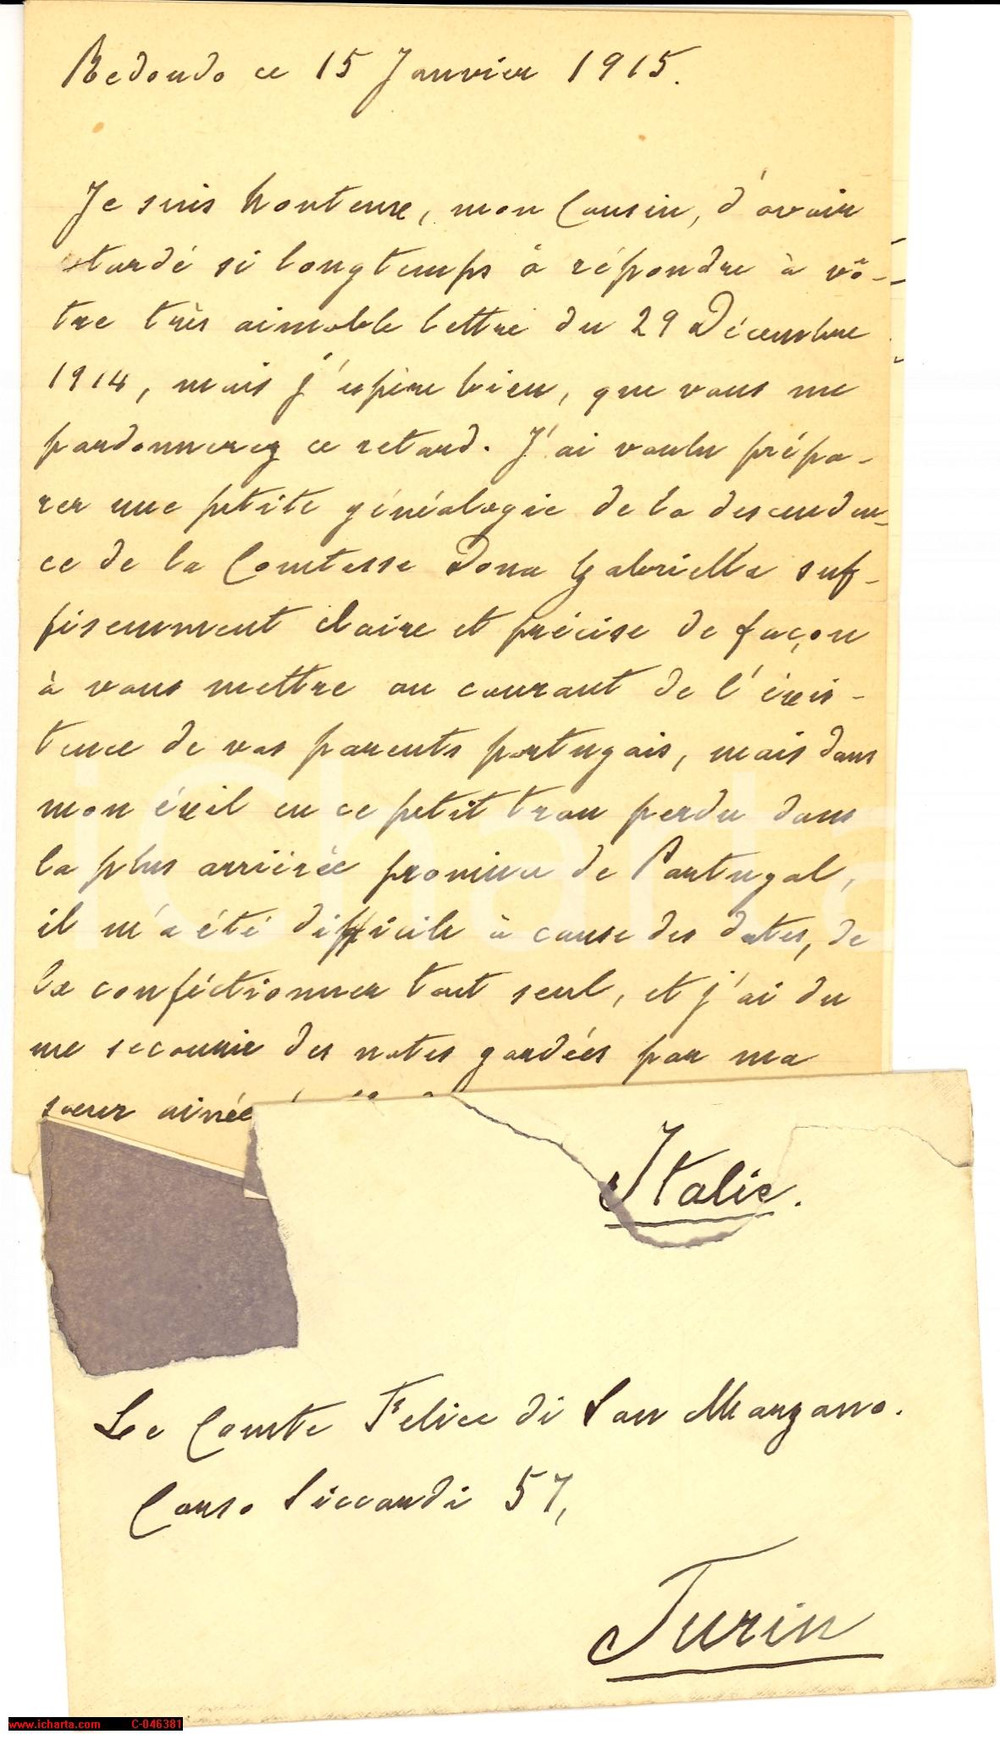 Redondo ce 15 Janvier 1915.
Je suis honteuse, mon Cousin, d'avoir
tardé si longtemps à répondre à vô-
tre très aimable lettre du 29 Décembre
1914, mais j'espère bien, que vous me
pardonnerez ce retard. J'ai voulu prépa-
rer une petite généalogie de la descenden-
ce de la Comtesse Dona Gabriella suf-
fisemment claire et précise de façon
à vous mettre au courant de l'éxis-
tence de vos parents portugais, mais dans
mon éxil en ce petit trou perdu dans
la plus arriérée province de Portugal,
il m'a été difficile à cause des dates, de
la conféctionner tout seul, et j'ai du
me secourir des notes gardées par ma
soeur ainée
Italie.
Le Comte Felice di San Marzano.
Corso Siccardi 57,
Turin
www.icharta.com C-046381